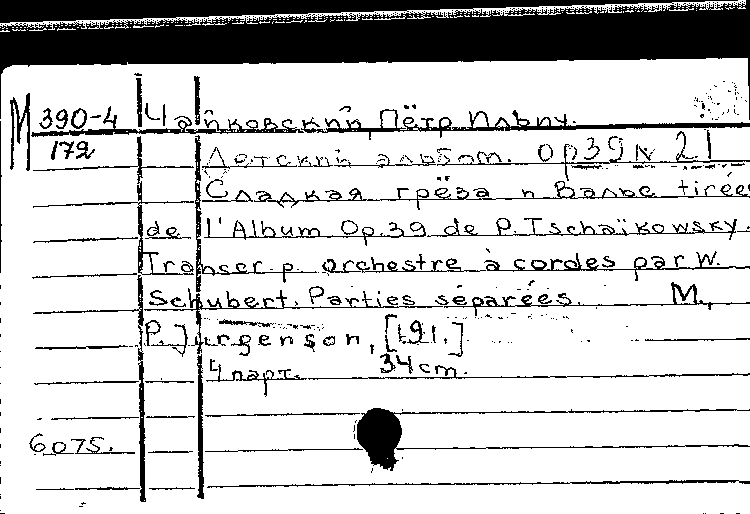 М 390-4 Чайковский, Пётр Ильич.
172 Детский альбом. Op 39 № 21
Сладкая грёза и Вальс tirées
de l'Album Op.39 de P. Tschaïkowsky.
Transcr. p. orchestre à cordes par W.
Schubert. Parties séparées. М.,
P. Jurgenson, [191.]
4 парт. 34 cm.
6075.